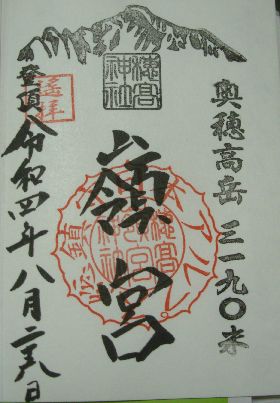 奥穂高岳 三一九〇米
穂高神社
嶺宮
登頂
遙拝
令和四年八月二十八日